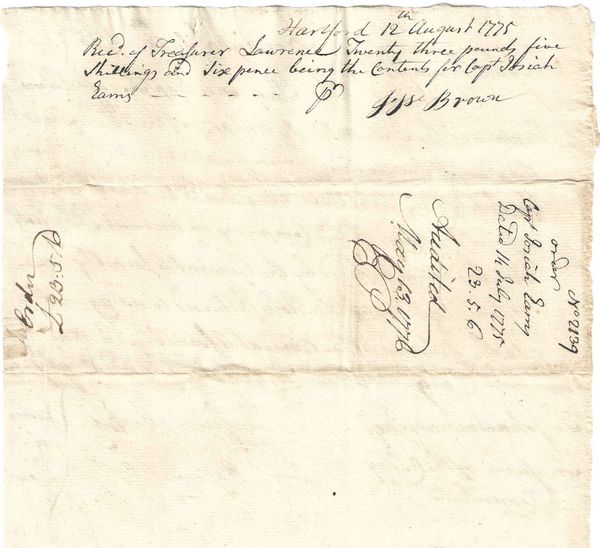 Hartford 12th August 1775
Recd. of Treasurer Lawrence Twenty three pounds five
Shillings and Six pence being the Contents for Capt Josiah
Eamg
Pr Jesse Brown
No 2139
order
Capt Josiah Eamg
Dated 14 July 1775
23.5.6
Audited
May 13. 1776
Order
£23.5.6